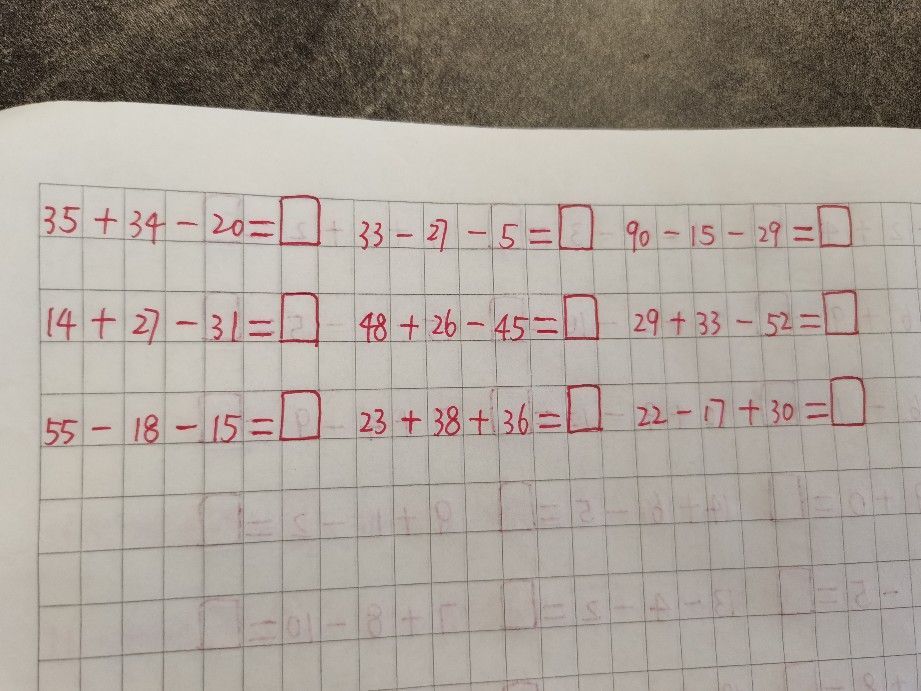 35 + 34 - 20 = □ 33 - 27 - 5 = □ 90 - 15 - 29 = □
14 + 27 - 31 = □ 48 + 26 - 45 = □ 29 + 33 - 52 = □
55 - 18 - 15 = □ 23 + 38 + 36 = □ 22 - 17 + 30 = □